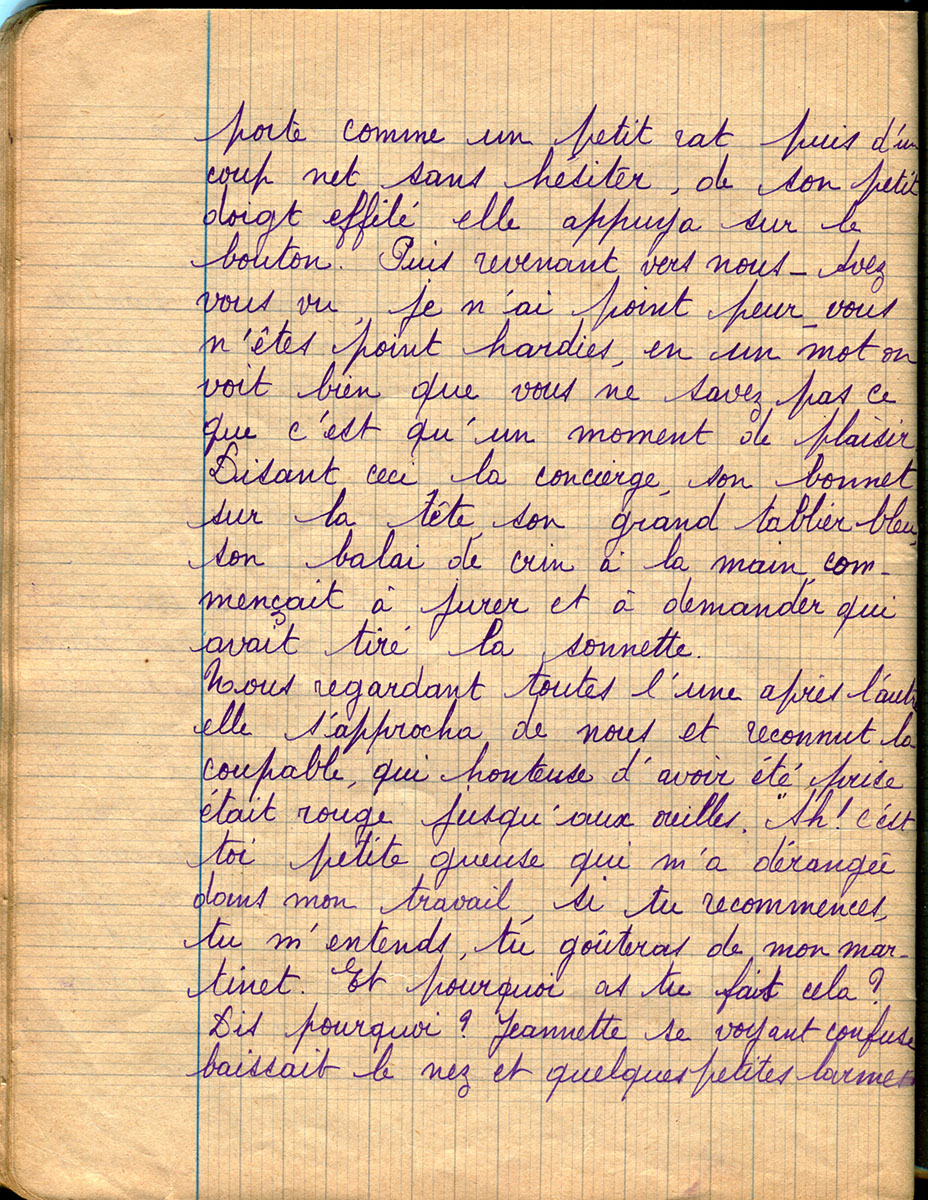 porte comme un petit rat puis d'un
coup net sans hésiter, de son petit
doigt effilé elle appuya sur le
bouton. Puis revenant vers nous _ Avez
vous vu, je n'ai point peur _ vous
n'êtes point hardies, en un mot on
voit bien que vous ne savez pas ce
que c'est qu'un moment de plaisir.
Disant ceci la concierge, son bonnet
sur la tête, son grand tablier bleu,
son balai de crin à la main, com-
mençait à jurer et à demander qui
avait tiré la sonnette.
Nous regardant toutes l'une après l'autre
elle s'approcha de nous et reconnut la
coupable, qui honteuse d'avoir été prise
était rouge jusqu'aux oreilles. "Ah! c'est
toi petite gueuse qui m'a dérangée
dans mon travail, si tu recommences,
tu m'entends, tu goûteras de mon mar-
tinet. Et pourquoi as tu fait cela?
Dis pourquoi? Jeannette se voyant confuse
baissait le nez et quelques petites larmes